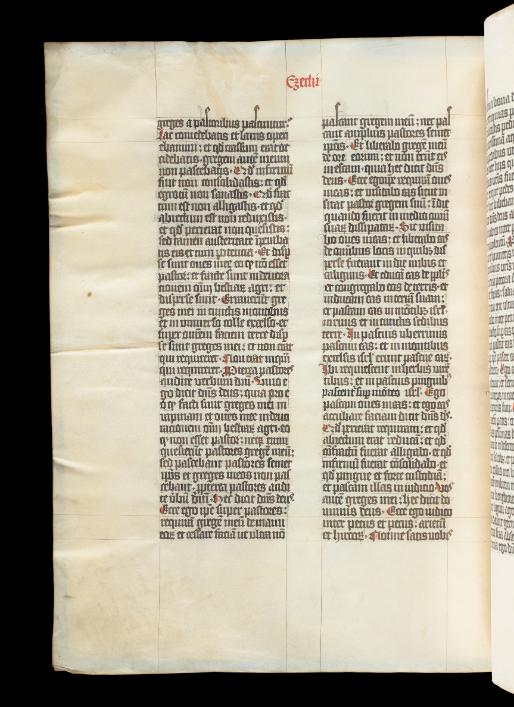 Ezechi
greges a pastoribus pascuntur:
Lac comedebatis et lanis operi
ebamini: et qd crassum erat oc
cidebatis: gregem autem meum
non pascebatis. Qd infirmum
fuit non consolidastis: et qd
egrotum non sanastis. Qd frac
tum est non alligastis: et qd
abiectum est non reduxistis.
et qd perierat non quesistis:
sed cum austeritate imperaba
tis eis et cum potencia. Et disp
se sunt oves mee eo q non esset
pastor: et facte sunt in devora
cionem omnium bestiarum agri: et
disperse sunt. Erraverunt gre
ges mei in cunctis montibus
et in universo colle excelso: et
super omnem faciem terre disp
si sunt greges mei: et non erat
qui requireret. Non erat inquam
qui requireret. Propterea pastores
audite verbum dni: Vivo e
go dicit dns deus: quia pro e
o q facti sunt greges mei in
rapinam et oves mee in devo
racionem omnium bestiarum agri eo
q non esset pastor: neque enim
quesierunt pastores gregem meum:
sed pascebant pastores semet
ipsos et greges meos non pas
cebant: propterea pastores audi
te verbum dni. Hec dicit dns deus
Ecce ego ipse super pastores:
requiram gregem meum de manu
eorum et cessare faciam ut ultra non
pascant gregem meum: nec pas
cant amplius pastores semet
ipsos. Et liberabo gregem meum
de ore eorum: et non erit eis
in escam. quia hec dicit dns
deus. Ecce ego ipse requiram oves
meas: et visitabo eas sicut vi
sitat pastor gregem suum: in die
quando fuerit in medio ovium
suarum dissipatarum. Sic visita
bo oves meas: et liberabo eas
de omnibus locis in quibus dis
perse fuerant in die nubis et
caliginis. Et educam eas de populis
et congregabo eas de terris: et
inducam eas in terram suam:
et pascam eas in montibus isrl.
in rivis et in cunctis sedibus
terre. In pascuis uberrimis
pascam eas: et in montibus
excelsis isrl erunt pascue earum
Ibi requiescent in herbis vire
tibus: et in pascuis pinguibus
pascentur super montes isrl. Ego
pascam oves meas: et ego eas
accubare faciam dicit dns deus.
Qd perierat requiram: et qd
abiectum erat reducam: et qd
confractum fuerat alligabo. et qd
infirmum fuerat consolidabo. et
qd pingue et forte custodiam:
et pascam illas in iudicio. Vos
autem greges mei: hec dicit do
minus deus. Ecce ego iudico
inter pecus et pecus: arietum
et hircorum. Nonne satis vobis